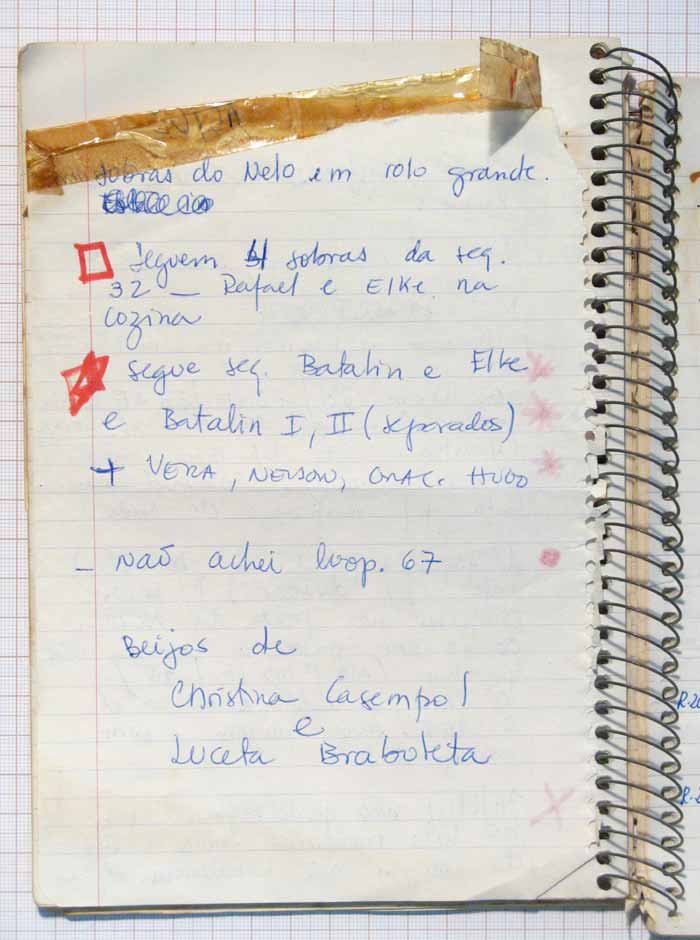 sobras do Nelo em rolo grande.
□ Seguem sobras da seq.
32 — Rafael e Elke na
cozina
segue seq. Batalin e Elke
e Batalin I, II (separados)
+ VERA, NELSON, GRAC. HUGO
- Não achei loop. 67
Beijos de
Christina Casempol
e
Luceta Braboleta